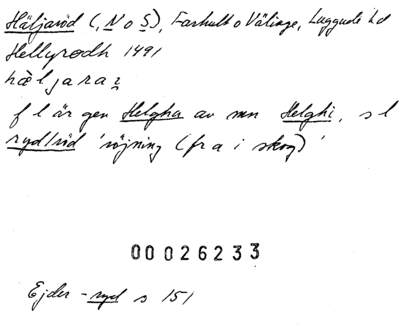 Häljaröd (, N o S), Farhult o Välinge, Luggude hd
Hellyrødh 1491
hæ̀ljaraʐ
f l är gen Helgha av mn Helghi, s l
ryd/röd 'röjning (fr a i skog)'
00026233
Ejder - ryd s 151